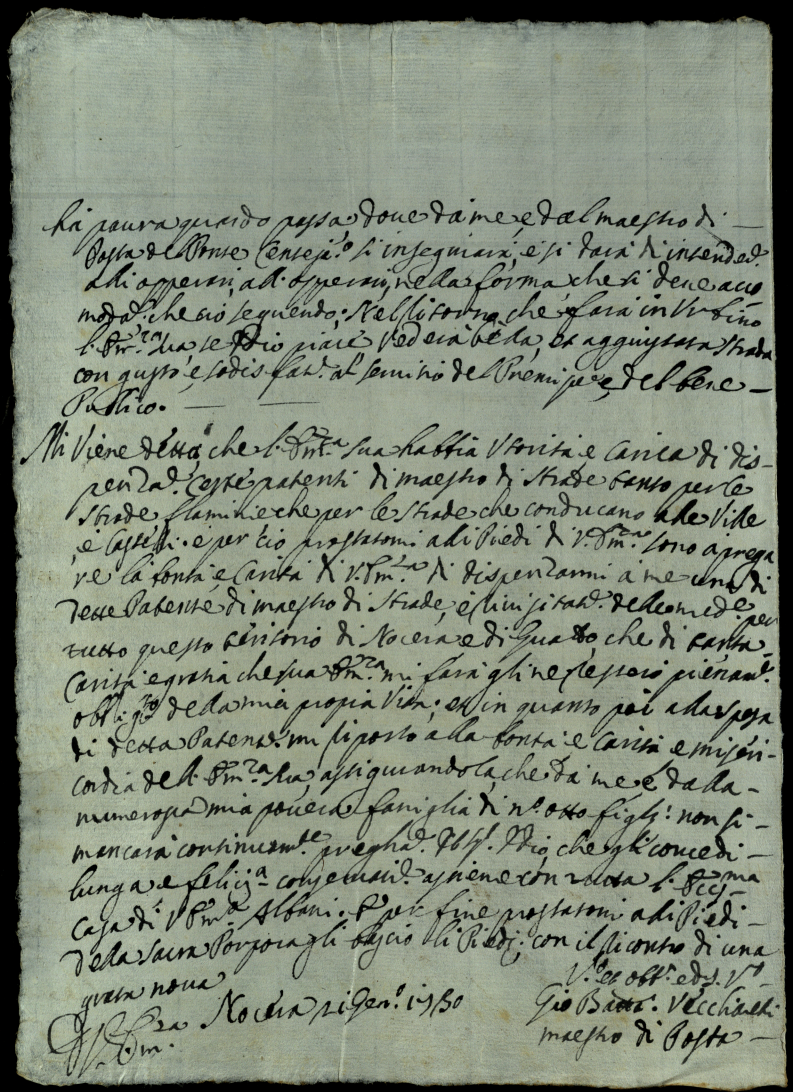 ha paura quando passa dove da me, e dal maestro di
Posta del Ponte si insegniara, e si dara di intended.
alli opperari, alli opperari, nella forma che si deve acco
mod. che cio seguendo. Nel ritorno che fara in Urbino
l. Em.za sua se Iddio piace vedera bella, et aggiustata strada
con gusto, e sodisfat. al servitio del e del bene
Publico.
Mi viene detto, che l. Em.za sua habbia e carica di dis-
penzad. certe patenti di maestro di strade tanto per le
strade flaminie che per le strade che conducano alle ville
e Castelli. e per cio prostatomi alli Piedi di V. Em.za sono a prega
re la bonta, e Carita di V. Em.za di dispenzarmi a me una di
dette Patente, di maestro di strade, e per
tutto questo teritorio di Nocera, e di Gualdo, che di tanta
Carita e gratia che sua Em.za mi fara gli ne restero pienam.
della mia propia vita; et in quanto poi alla spesa
di detta Patent. mi riporto alla bonta e Carita e miseri-
cordia dell. Em.za sua, assiguiandola, che da me, e dalla
numerosa mia povera famiglia di n.o otto figli: non si
mancara continuam.te pregha. Iddio, che gli concedi
lunga e felici.a con tutta l. Ecc.ma
Casa di V. Em.za Albani. E per fine prostatomi alli Piedi
della sacra Porpora gli bascio li Piedi, con il di una
grata nova
Nocera 21 Gen.o 1730
Gio Batta. Vecchiarelli
maestro di Posta